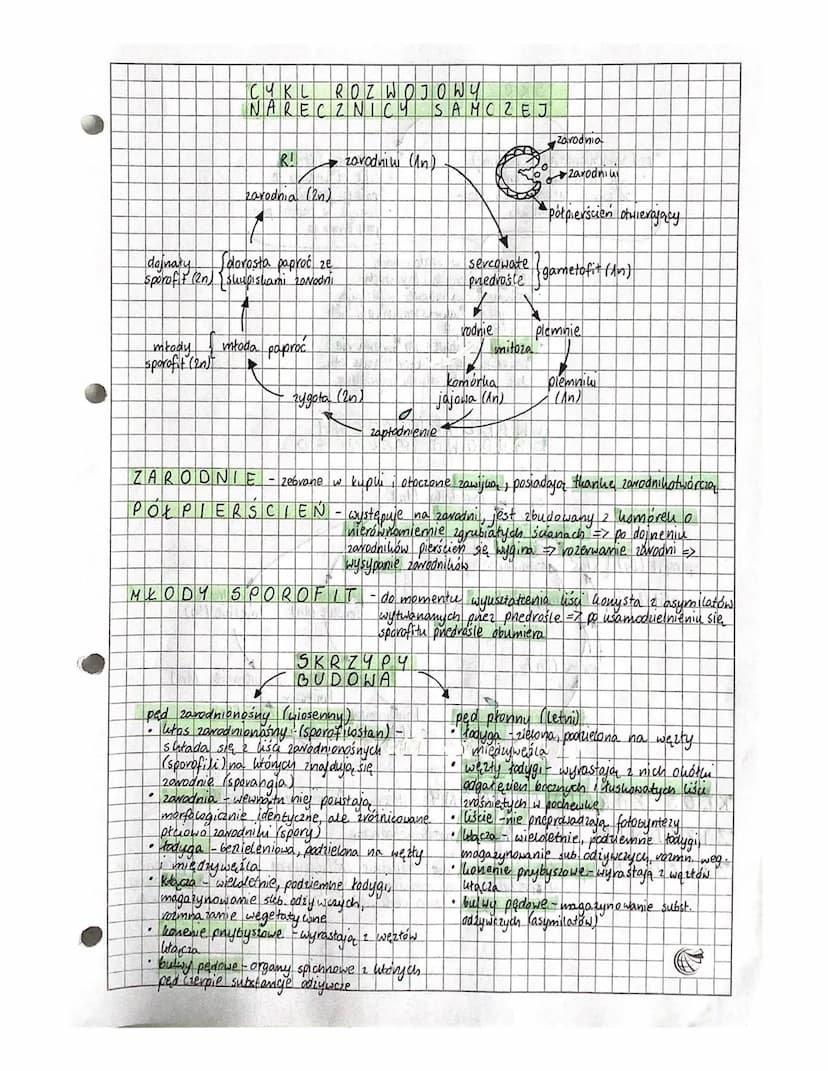 CYKL ROZWOJOWY
NARECZNICY SAMCZEJ
R!
zarodniki (1n)
zarodnia
zarodniki
półpierścień otwierający
zarodnia (2n)
dojrzały
sporofit (2n)
dorosła paproć ze
skupiskami zarodni
sercowate
przedrośle
gametofit (1n)
rodnie
plemnie
mitoza
młody
sporofit (2n)
młoda paproć
komórka
jajowa (1n)
plemniki
(1n)
zygota (2n)
zapłodnienie
ZARODNIE - zebrane w kupki i otoczone zawijką, posiadają tkankę zarodnikotwórczą
PÓŁPIERŚCIEŃ - występuje na zarodni, jest zbudowany z komórek o
nierównomiernie zgrubiałych ścianach => po dojrzeniu
zarodników pierścień się wygina => rozerwanie zarodni =>
wysypanie zarodników
MŁODY SPOROFIT - do momentu wykształcenia liści korzysta z asymilatów
wytwarzanych przez przedrośle => po usamodzielnieniu się
sporofitu przedrośle obumiera
SKRZYPY
BUDOWA
pęd zarodnionośny (wiosenny)
• kłos zarodnionośny (sporofilostan) -
składa się z liści zarodnionośnych
(sporofili) na których znajdują się
zarodnie (sporangia)
• zarodnia - wewnątrz niej powstają
morfologicznie identyczne, ale zróżnicowane
płciowo zarodniki (spory)
• łodyga - bezzieleniowa, podzielona na węzły
i międzywęźla
• kłącza - wieloletnie, podziemne łodygi,
magazynowanie sub. odżywczych,
rozmnażanie wegetatywne
• korzenie przybyszowe - wyrastają z węzłów
kłącza
• bulwy pędowe - organy spichrzowe z których
pęd czerpie substancje odżywcze
pęd płonny (letni)
• łodyga - zielona, podzielona na węzły
i międzywęźla
• węzły łodygi - wyrastają z nich okółki
odgałęzień bocznych i łuskowatych liści
zrośniętych w pochewkę
• liście - nie przeprowadzają fotosyntezy
• kłącza - wieloletnie, podziemne łodygi,
magazynowanie sub. odżywczych, rozmn. weg.
• korzenie przybyszowe - wyrastają z węzłów
kłącza
• bulwy pędowe - magazynowanie subst.
odżywczych (asymilatów)